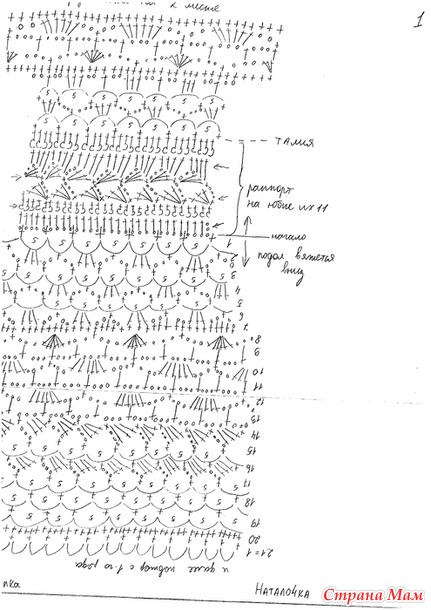 2 листе
1
ТАЛИЯ
раппорт
на юбке их 11
начало
подол вяжется
вниз
1
2
3
4
5
6
7
8
9
10
11
12
13
14
15
16
17
18
19
20
21=1
и далее повтор с 1-го ряда
пка
НАТАЛОЧКА
Страна Мам